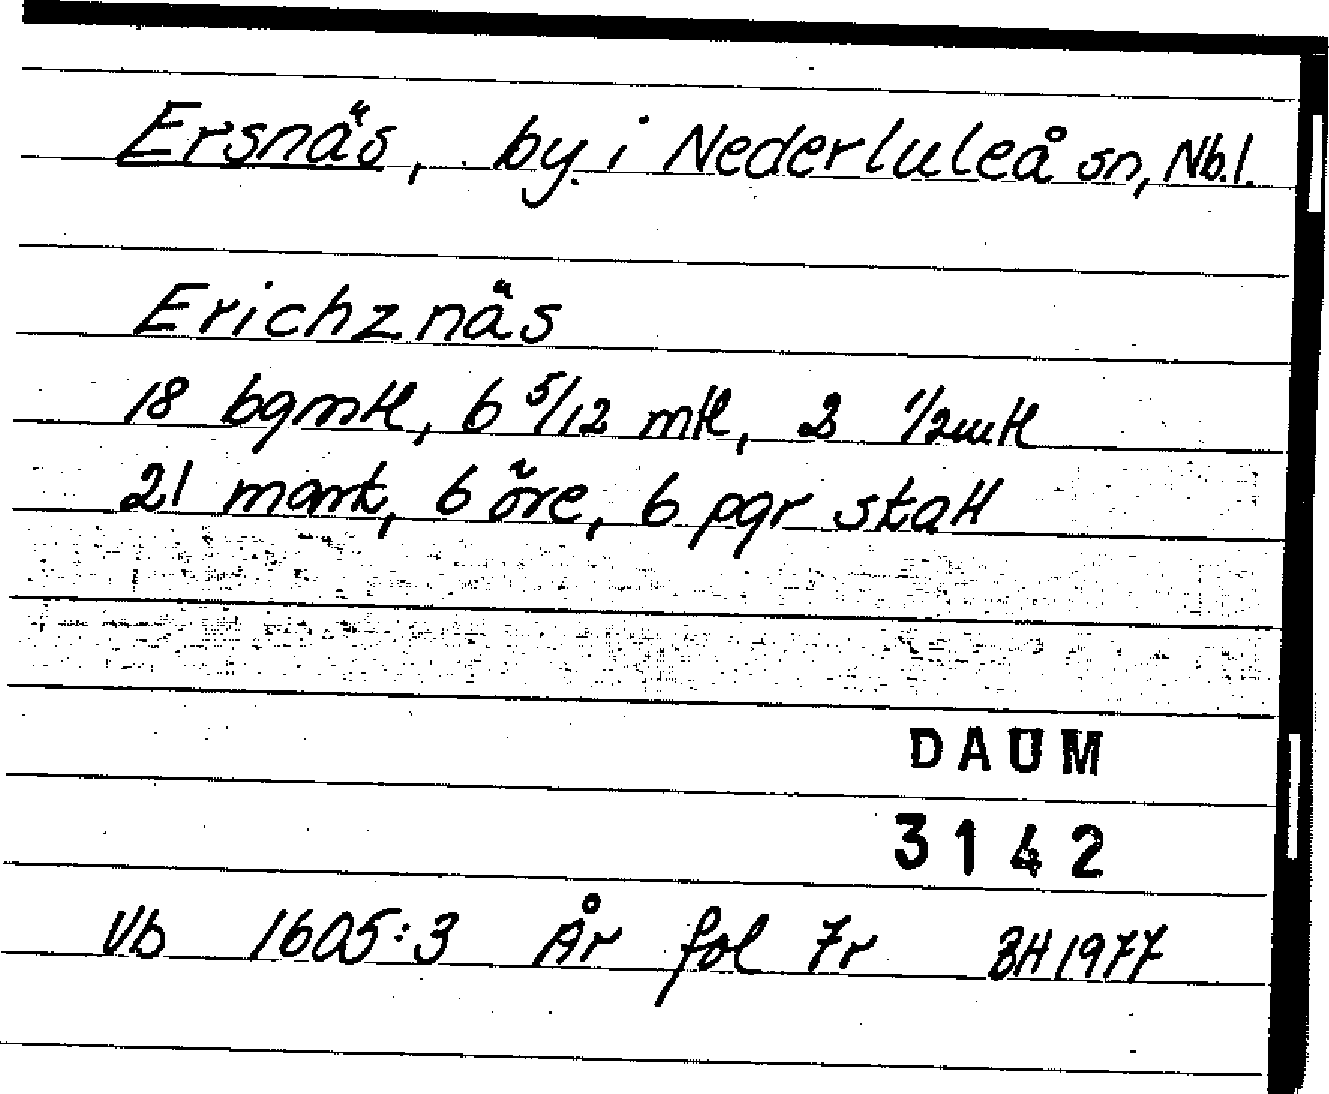 Ersnäs, by i Nederluleå sn, Nb.l.
Erichznäs
18 bgmtl, 6 5/12 mtl, 2 1/2mtl
21 mark, 6 öre, 6 pgr skatt
DAUM
3142
Vb 1605:3 År fol 7r BH 1977